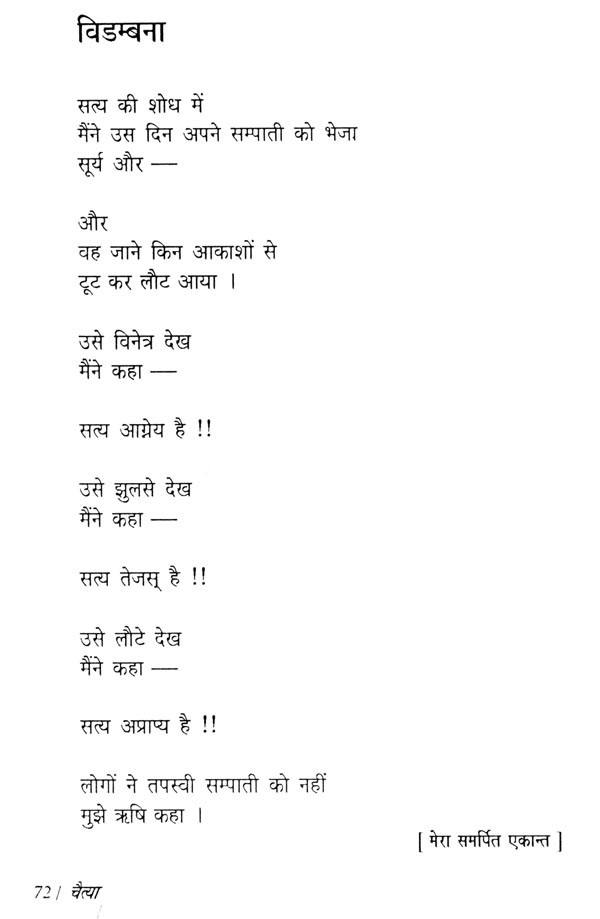 विडम्बना
सत्य की शोध में
मैंने उस दिन अपने सम्पाती को भेजा
सूर्य और —
और
वह जाने किन आकाशों से
टूट कर लौट आया ।
उसे विनेत्र देख
मैंने कहा —
सत्य आग्नेय है !!
उसे झुलसे देख
मैंने कहा —
सत्य तेजस् है !!
उसे लौटे देख
मैंने कहा —
सत्य अप्राप्य है !!
लोगों ने तपस्वी सम्पाती को नहीं
मुझे ऋषि कहा ।
[ मेरा समर्पित एकान्त ]
72 / चैत्या